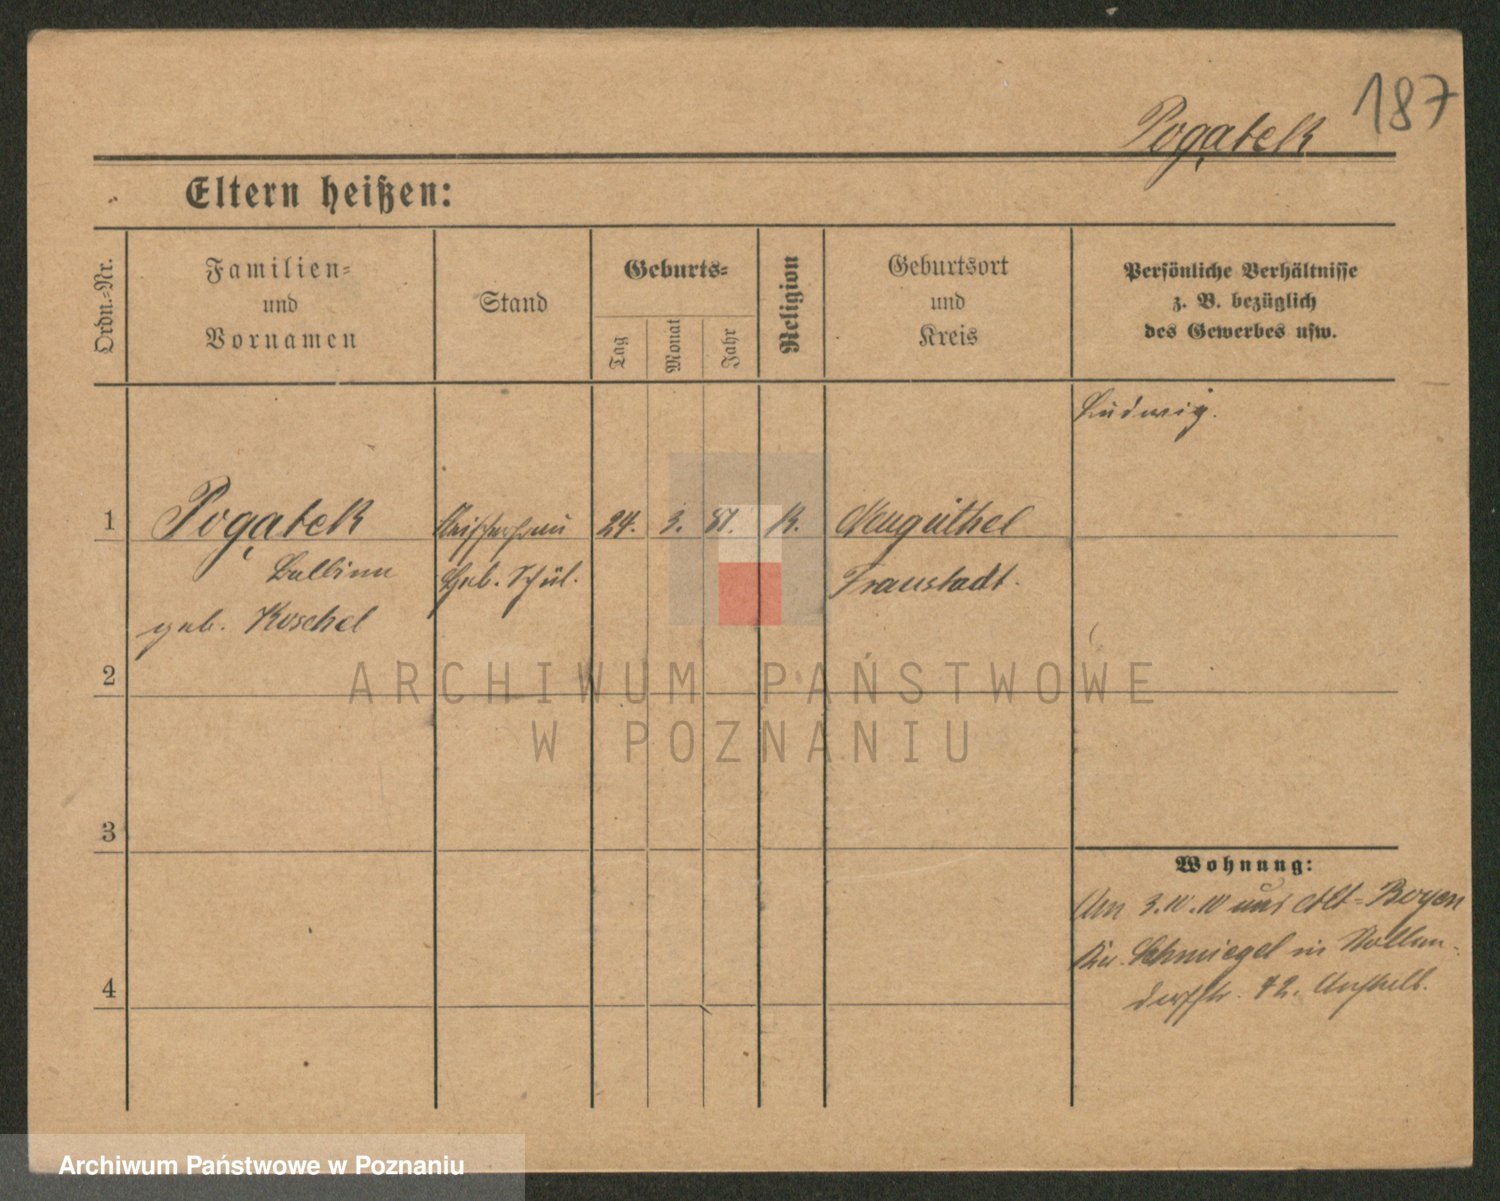 187
Pogątek
Eltern heißen:
Ordn.=Nr.
Familien=
und
Vornamen
Stand
Geburts=
Tag
Monat
Jahr
Religion
Geburtsort
und
Kreis
Persönliche Verhältnisse
z. B. bezüglich
des Gewerbes usw.
Ludwig.
1 Pogątek 24. 3. 81. K. Neugüthel
Balbina Geb. Schül. Fraustadt.
geb. Koschel
2
3
Wohnung:
Am 3.10.10 aus Alt=Boyen
Kr. Schmiegel in Nollen=
4
dorfstr. 72.
ARCHIWUM PAŃSTWOWE
W POZNANIU
Archiwum Państwowe w Poznaniu